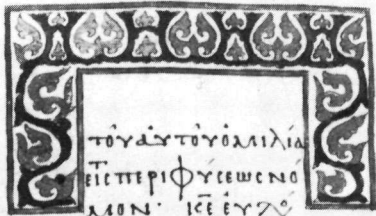 τοῦ αὐτοῦ ὁμιλία
εἰς περὶ φύσεως νό
μον· κε εὐλο